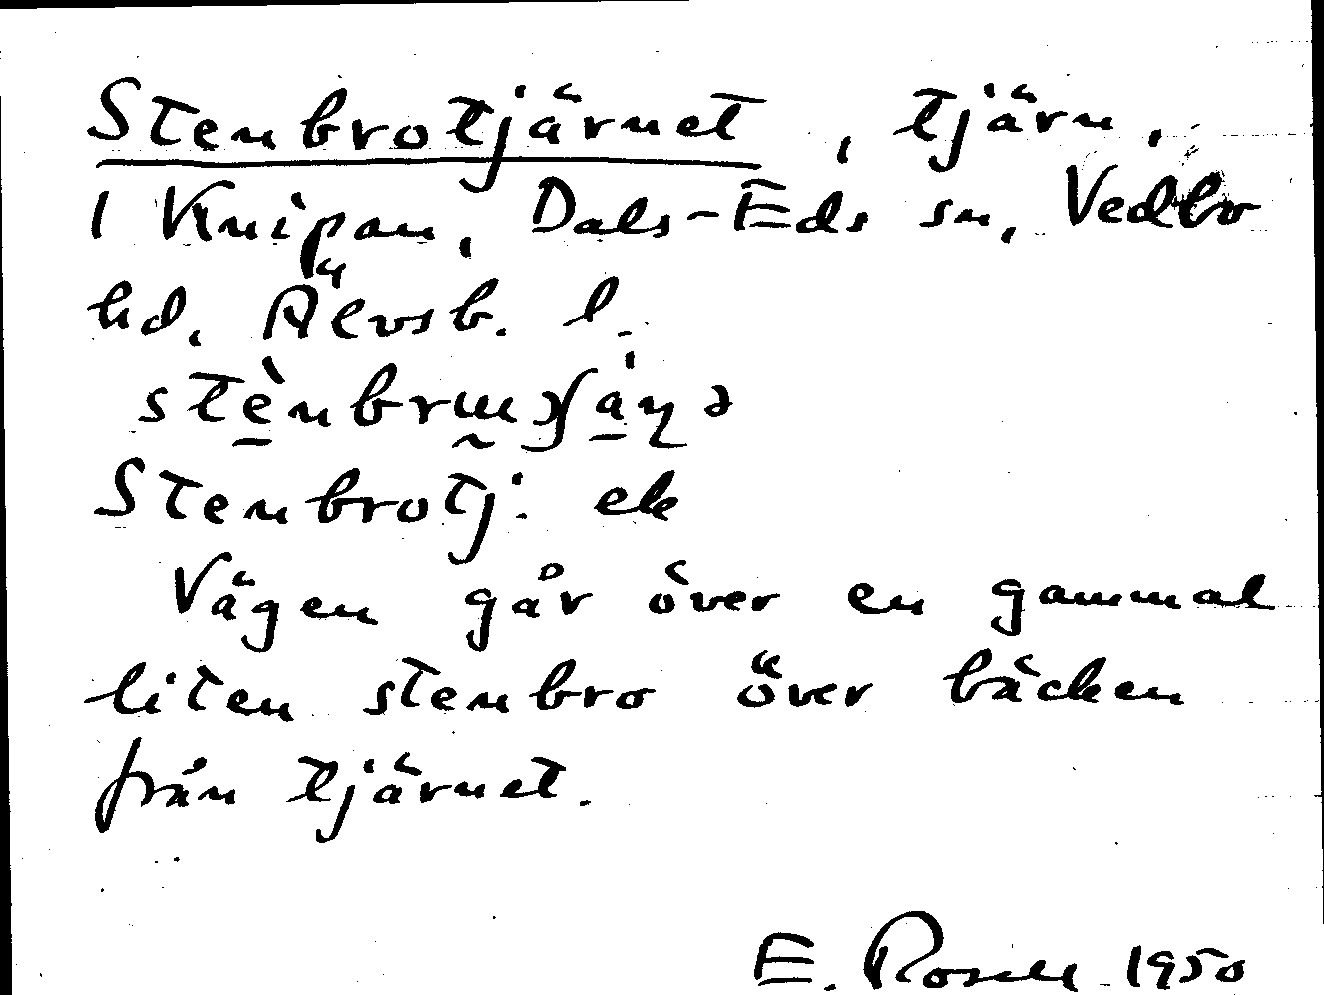 Stenbrotjärnet, tjärn,
1 Knipan, Dals-Eds sn, Vedbo
hd, Älvsb. l.
Stenbrotj: ek
Vägen går över en gammal
liten stenbro över bäcken
från tjärnet.
E. Rosell 1950